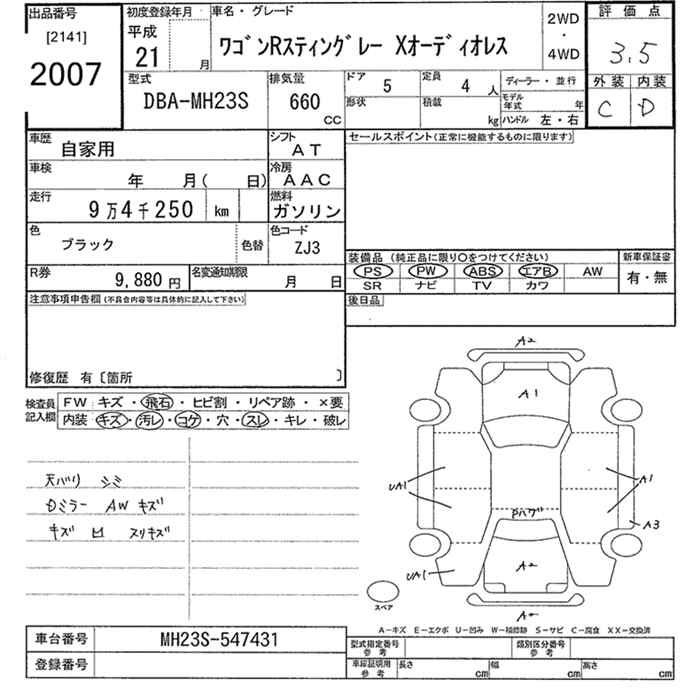 出品番号 初度登録年月 車名・グレード 2WD 評価点
[2141] 平成 ・
2007 21 月 ワゴンRスティングレー Xオーディオレス 4WD 3.5
型式 排気量 ドア 5 定員 4 人 ディーラー・並行 外装 内装
DBA-MH23S 660 cc 形状 積載 kg モデル年式 年 C D
ハンドル 左・右
車歴 自家用 シフト AT セールスポイント(正常に機能するものに限ります)
車検 年 月( 日) 冷房 AAC
走行 9万4千250 km 燃料 ガソリン
色 ブラック 色替 色コード ZJ3
装備品 (純正品に限り○をつけてください) 新車保証書
R券 9,880円 名変通知期限 月 日 PS PW ABS エアB AW 有・無
SR ナビ TV カワ
注意事項申告欄(不具合内容等は具体的に記入して下さい) 後日品
修復歴 有〔箇所 〕
検査員記入欄 FW キズ・飛石・ヒビ割・リペア跡・×要
内装 キズ・汚レ・コゲ・穴・スレ・キレ・破レ
天バリ シミ
Dミラー AW キズ
キズ 凹 スリキズ
A2
A1
UA1 A1
A3
Pハゲ
A2
UA1
スペア
A2
A-キズ E-エクボ U-凹み W-補修跡 S-サビ C-腐食 XX-交換済
車台番号 MH23S-547431 型式指定番号 参考 類別区分番号 参考
登録番号 車庫証明用 参考 長さ cm 幅 cm 高さ cm